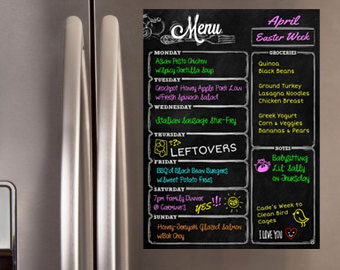 Menu
April
Easter Week
MONDAY
Asian Pesto Chicken
w/Spicy Tortilla Soup
TUESDAY
Crockpot Honey Apple Pork Loin
w/Fresh Spinach Salad
WEDNESDAY
Italian Sausage Stir-Fry
THURSDAY
LEFTOVERS
FRIDAY
BBQ'd Black Bean Burgers
w/Sweet Potato Fries
SATURDAY
7pm Family Dinner
@ Carniver's
YES!!!
SUNDAY
Honey-Teriyaki Glazed Salmon
w/Bok Choy
GROCERIES
Quinoa
Black Beans
Ground Turkey
Lasagna Noodles
Chicken Breast
Greek Yogurt
Corn & Veggies
Bananas & Pears
NOTES
Babysitting
Lil' Sally
on Thursday
Cade's Week to
Clean Bird
Cages
I LOVE YOU